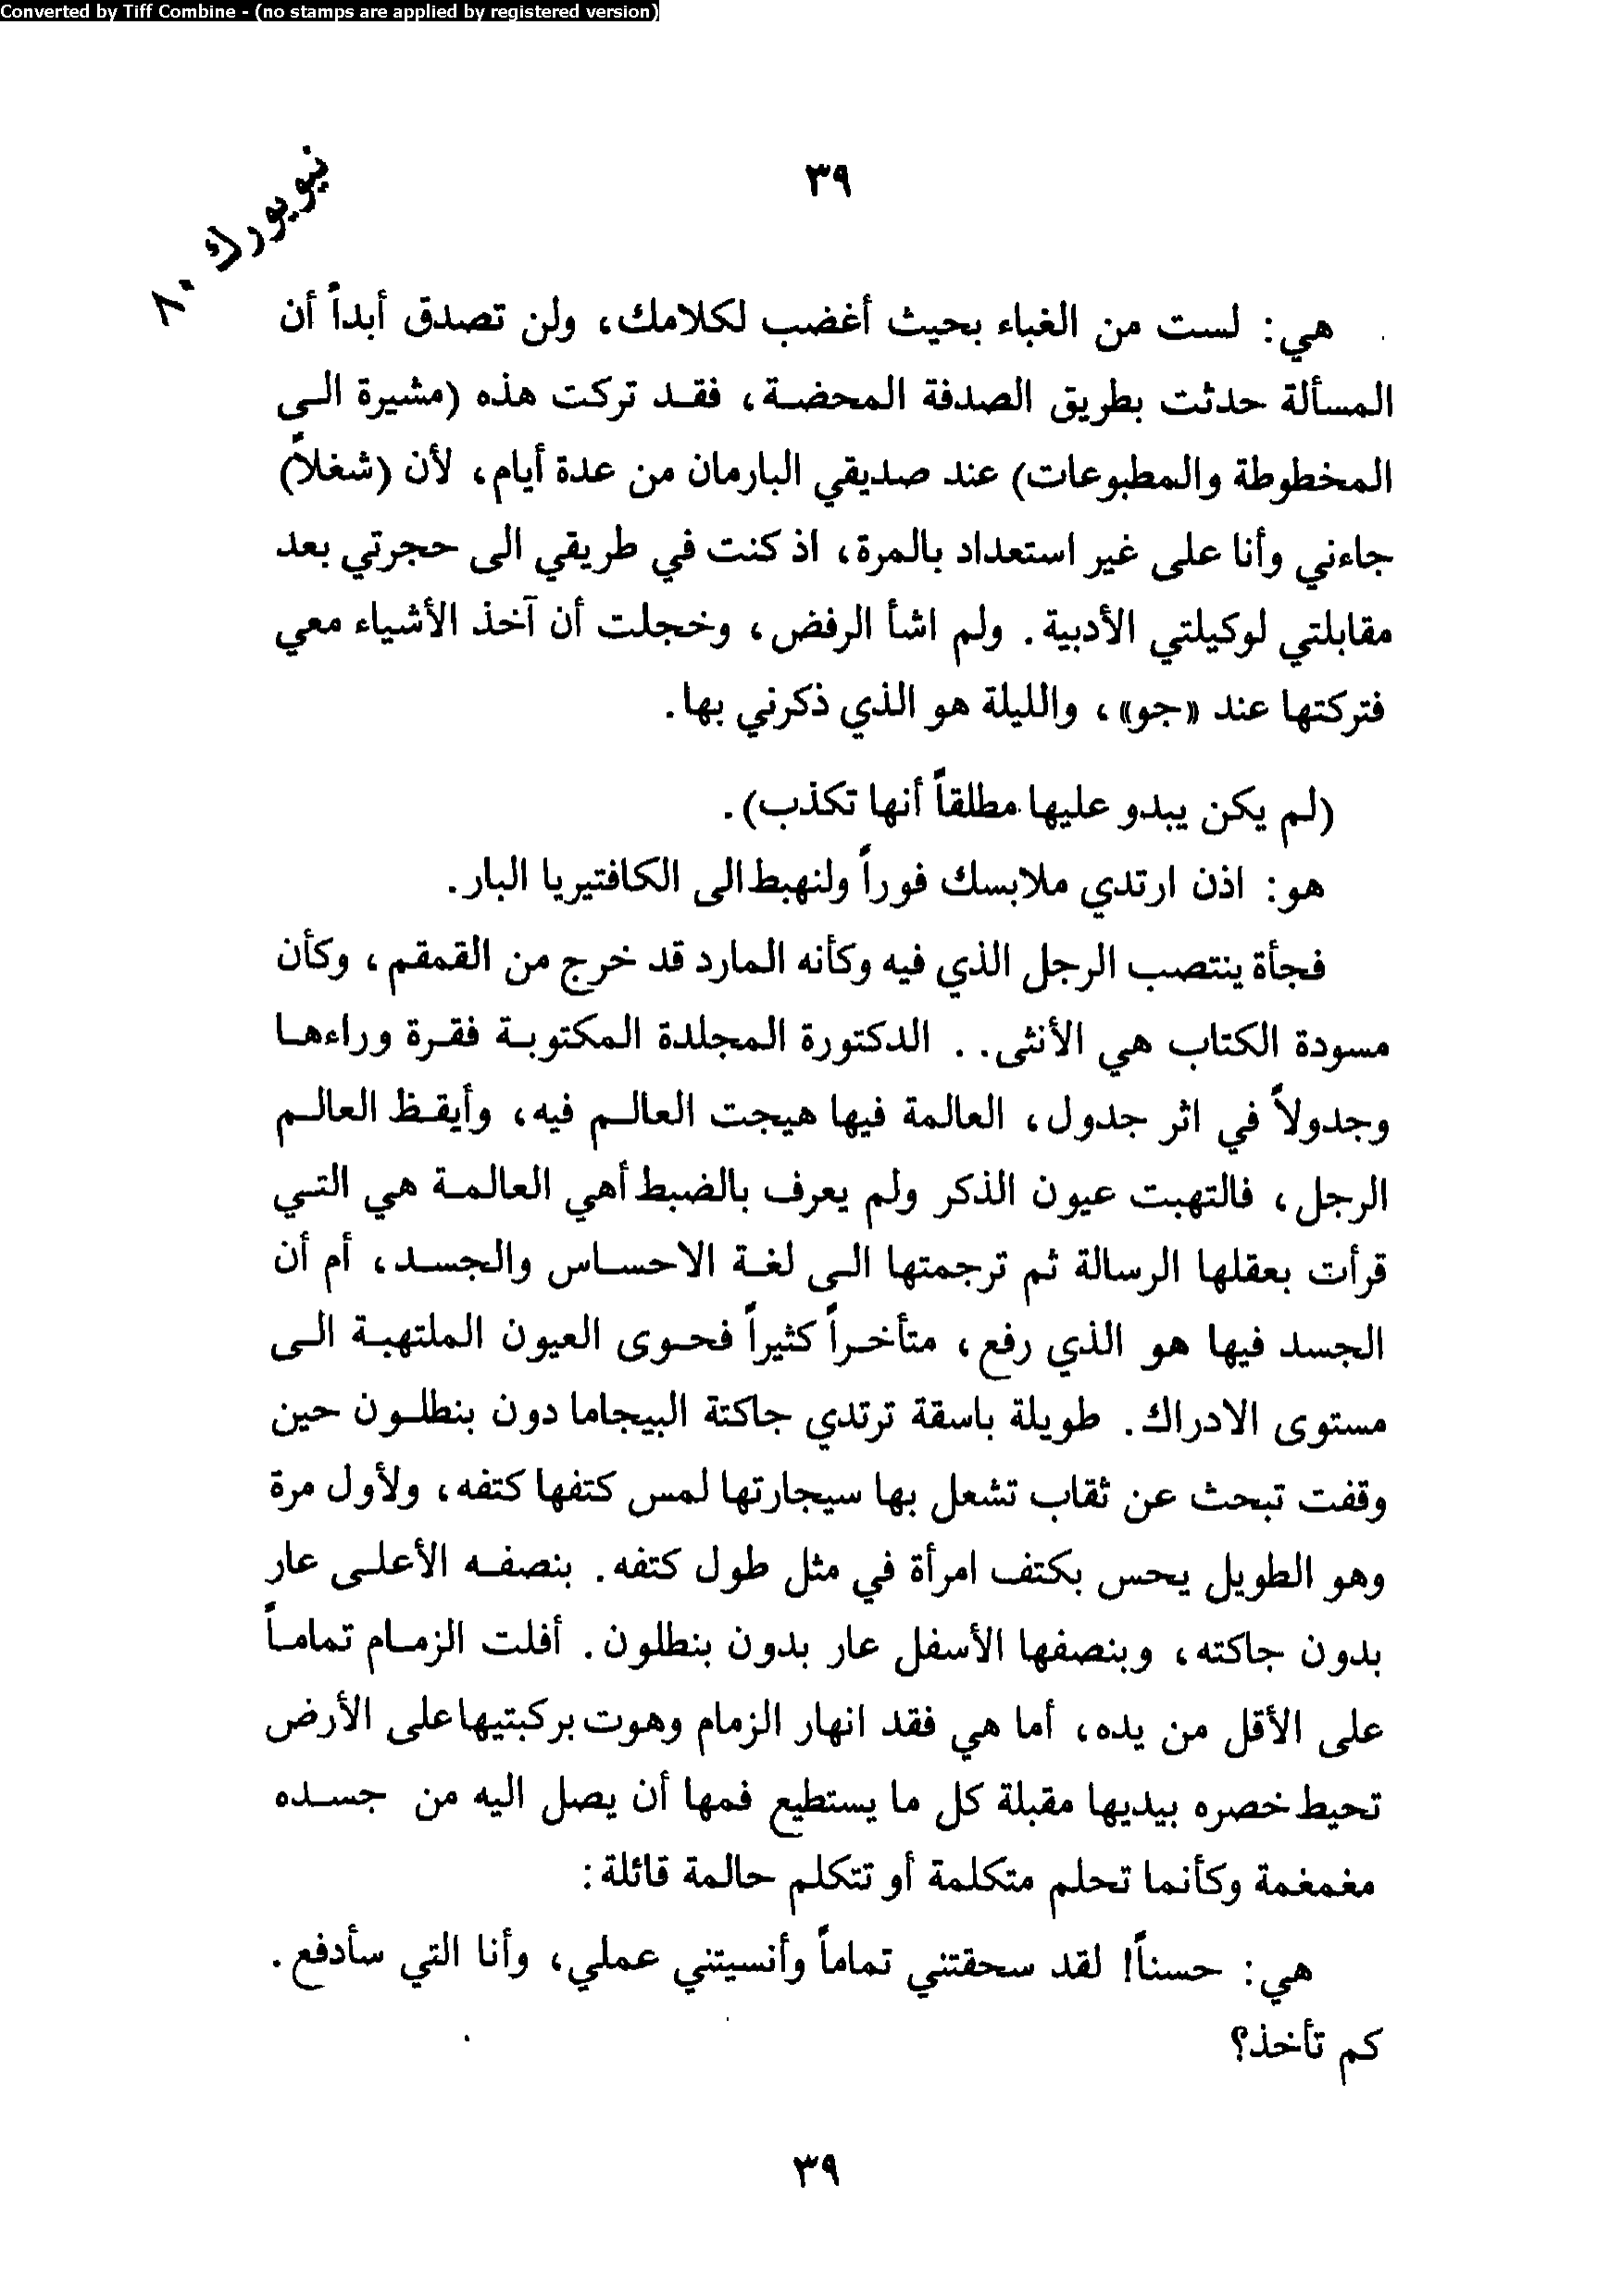 Converted by Tiff Combine - (no stamps are applied by registered version)
٣٩
نيويورك ٨٠
هي: لست من الغباء بحيث أغضب لكلامك، ولن تصدق أبداً أن
المسألة حدثت بطريق الصدفة المحضة، فقد تركت هذه (مشيرة الى
المخطوطة والمطبوعات) عند صديقي البارمان من عدة أيام، لأن (شغلاً)
جاءني وأنا على غير استعداد بالمرة، اذ كنت في طريقي الى حجرتي بعد
مقابلتي لوكيلتي الأدبية. ولم اشأ الرفض، وخجلت أن آخذ الأشياء معي
فتركتها عند «جو»، والليلة هو الذي ذكرني بها.
(لم يكن يبدو عليها مطلقاً أنها تكذب).
هو: اذن ارتدي ملابسك فوراً ولنهبط الى الكافتيريا البار.
فجأة ينتصب الرجل الذي فيه وكأنه المارد قد خرج من القمقم، وكأن
مسودة الكتاب هي الأنثى.. الدكتورة المجلدة المكتوبة فقرة وراءها
وجدولاً في اثر جدول، العالمة فيها هيجت العالم فيه، وأيقظ العالم
الرجل، فالتهبت عيون الذكر ولم يعرف بالضبط أهي العالمة هي التي
قرأت بعقلها الرسالة ثم ترجمتها الى لغة الاحساس والجسد، أم أن
الجسد فيها هو الذي رفع، متأخراً كثيراً فحوى العيون الملتهبة الى
مستوى الادراك. طويلة باسقة ترتدي جاكتة البيجاما دون بنطلون حين
وقفت تبحث عن ثقاب تشعل بها سيجارتها لمس كتفها كتفه، ولأول مرة
وهو الطويل يحس بكتف امرأة في مثل طول كتفه. بنصفه الأعلى عار
بدون جاكته، وبنصفها الأسفل عار بدون بنطلون. أفلت الزمام تماماً
على الأقل من يده، أما هي فقد انهار الزمام وهوت بركبتيها على الأرض
تحيط خصره بيديها مقبلة كل ما يستطيع فمها أن يصل اليه من جسده
مغمغمة وكأنما تحلم متكلمة أو تتكلم حالمة قائلة:
هي: حسناً! لقد سحقتني تماماً وأنسيتني عملي، وأنا التي سأدفع.
كم تأخذ؟
٣٩